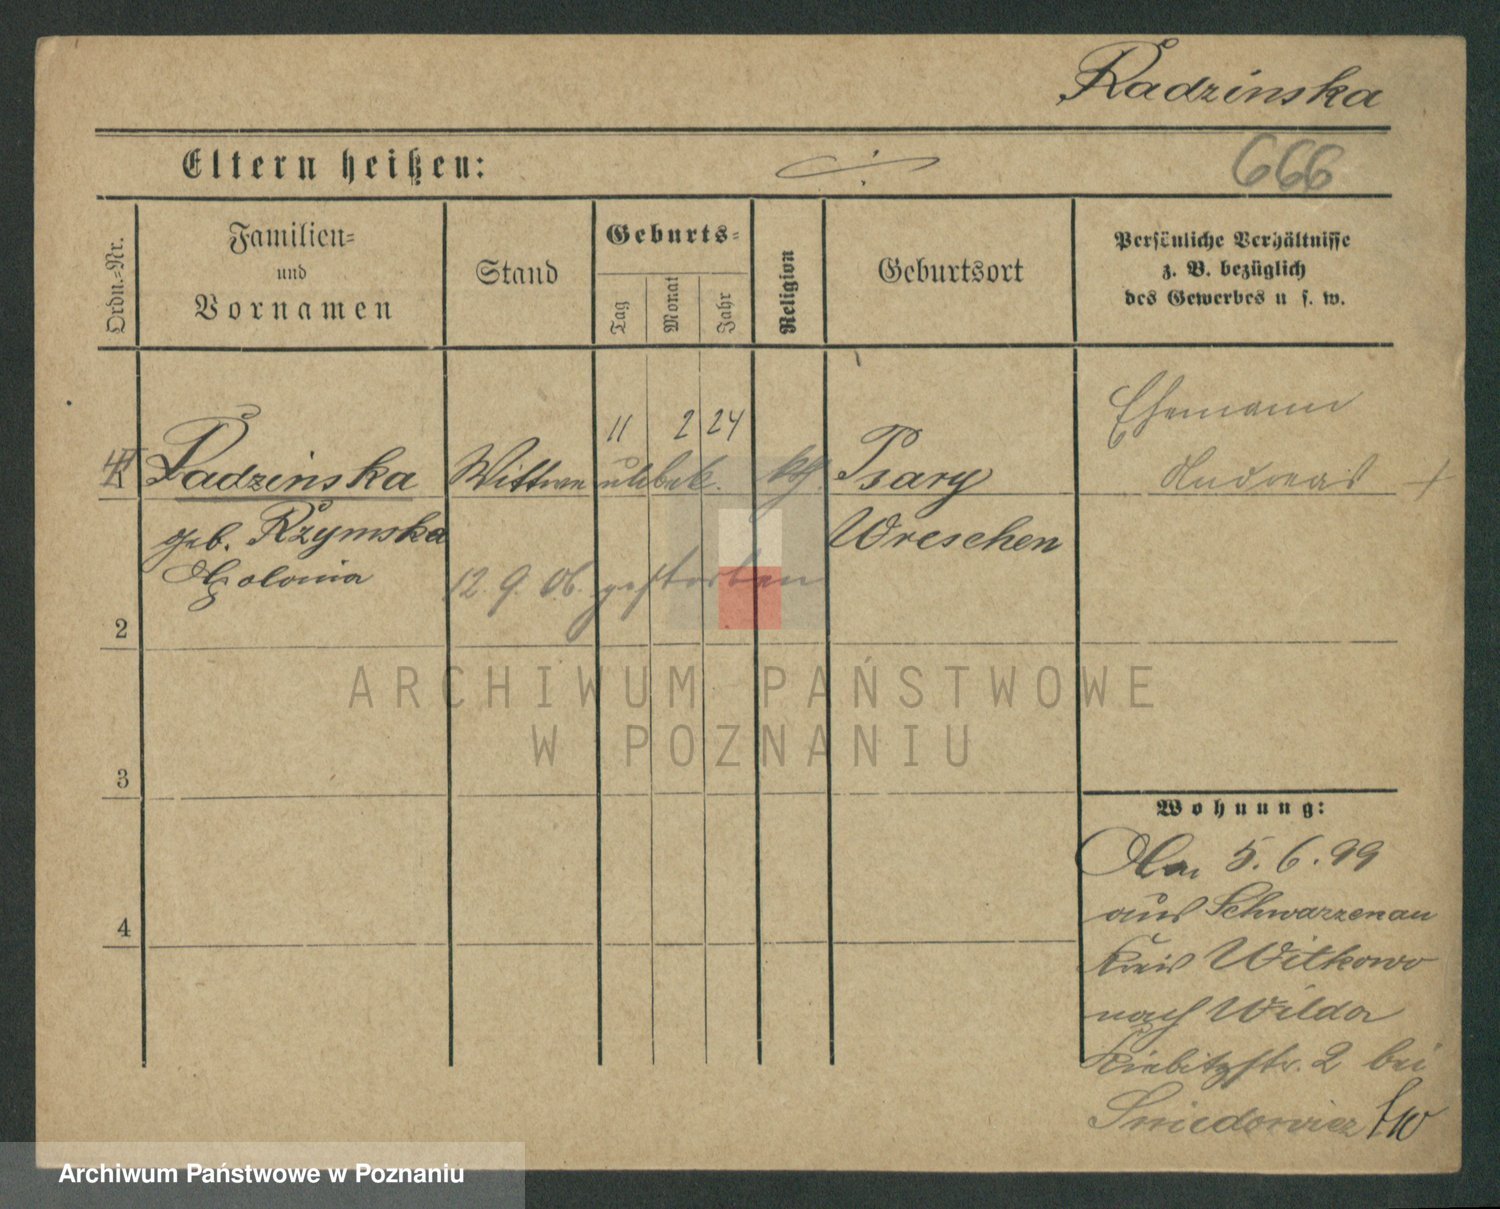 Radzinska
Eltern heißen:
666
Ordn.-Nr.
Familien-
und
Vornamen
Stand
Geburts-
Tag
Monat
Jahr
Religion
Geburtsort
Persönliche Verhältnisse
z. B. bezüglich
des Gewerbes u. s. w.
11 2 24
Ehemann
Radzinska
Wittwe
unbek.
kth.
Psary
Andreas +
geb. Rzymska
Wreschen
Apolonia
12. 9. 06. gestorben
2
3
4
Wohnung:
Am 5. 6. 99
aus Schwarzenau
Kreis Witkowo
nach Wilda
Kiebitzstr. 2 bei
ARCHIWUM PAŃSTWOWE
W POZNANIU
Archiwum Państwowe w Poznaniu